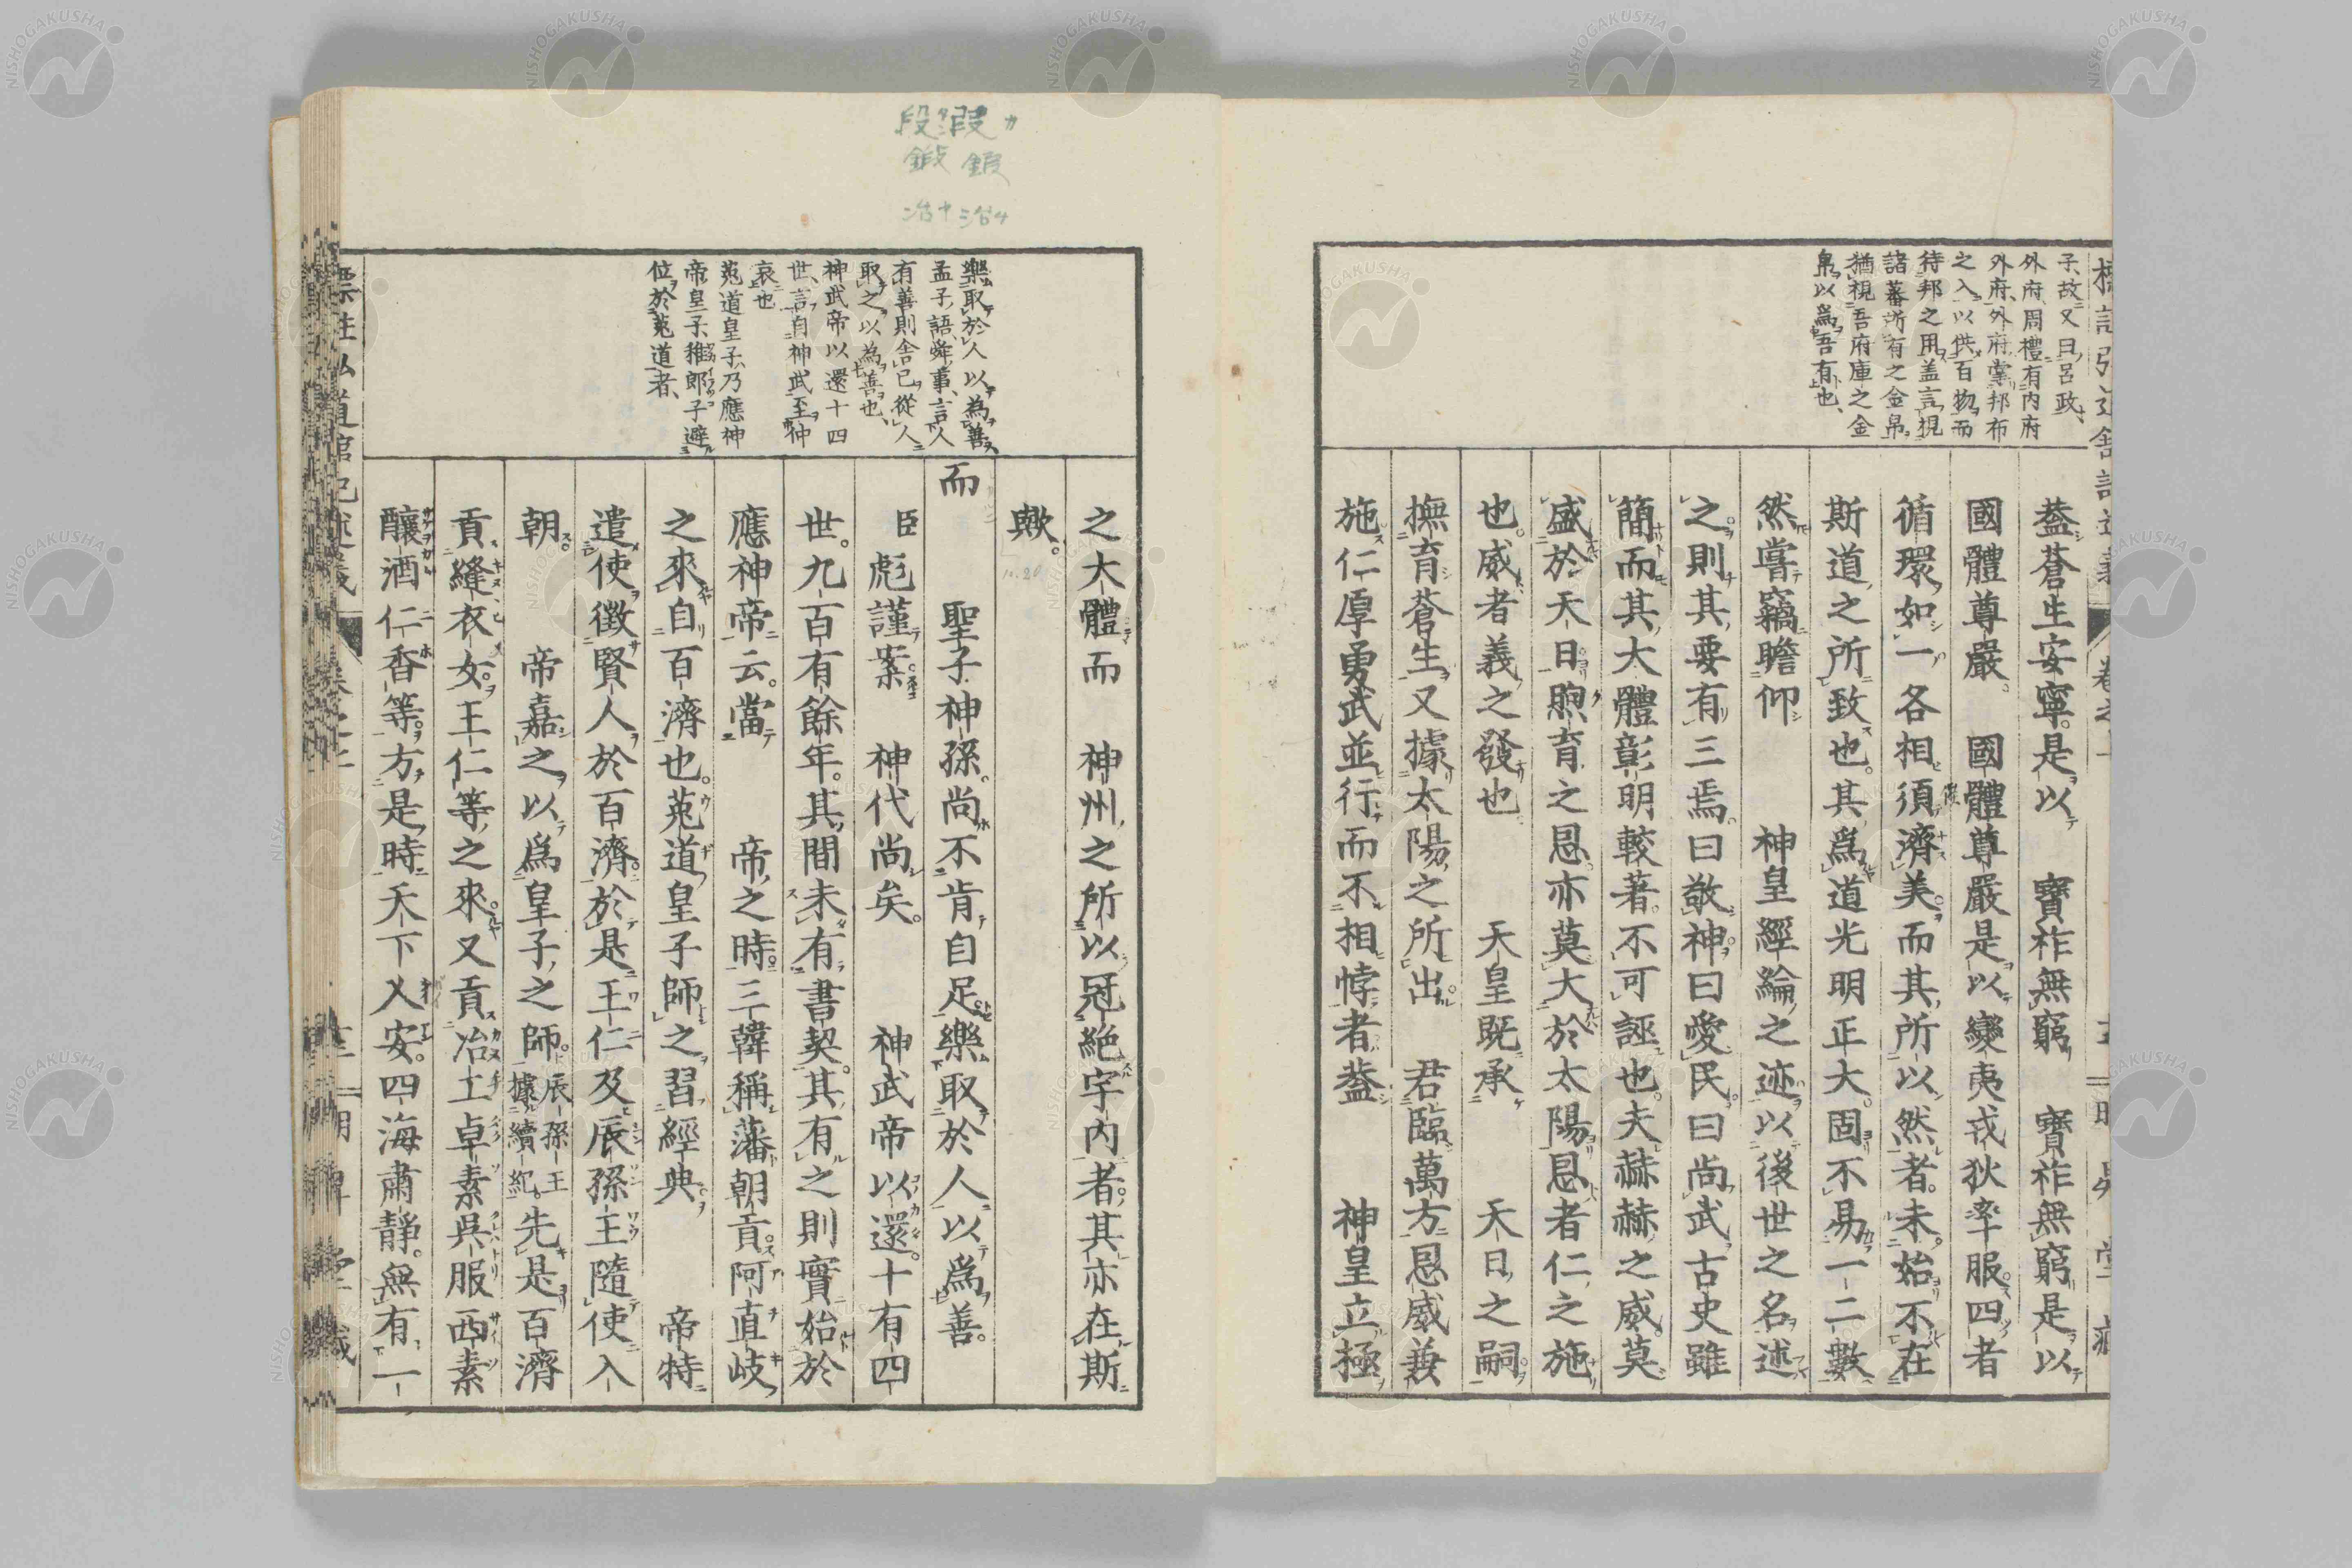 子、故又曰、呂政、
外府、周禮有内府
外府、外府掌邦布
之入、以供百物、而
待邦之用、盖言、視
諸蕃所有之金帛、
猶視吾府庫之金
帛、以爲吾有也、
葢蒼生安寧。是以　寶祚無窮　寶祚無窮。是以
國體尊嚴。國體尊嚴。是以蠻夷戎狄率服。四者
循環。如一。各相須濟美。而其所以然者。未始不在
斯道之所致也。其爲道光明正大。固不易一二數。
然嘗竊瞻仰　神皇經綸之迹。以後世之名述
之。則其要有三焉。曰敬神。曰愛民。曰尚武。古史雖
簡而其大體彰明較著。不可誣也。夫赫赫之威。莫
盛於天日。煦育之恩。亦莫大於太陽。恩者仁之施
也。威者義之發也　天皇既承　天日之嗣。
撫育蒼生。又據太陽之所出　君臨萬方。恩威兼
施。仁厚勇武。並行而不相悖者。葢　神皇立極
之大體而　神州之所以冠絶宇内者。其亦在斯
歟。
而　聖子神孫。尚不肯自足。樂取於人以爲善。
臣彪謹案。神代尚矣。　神武帝以還。十有四
世。九百有餘年。其間未有書契。其有之則實始於
應神帝云。當　帝之時。三韓稱藩朝貢。阿直岐
之來自百濟也。菟道皇子師之。習經典。　帝特
遣使徴賢人於百濟。於是王仁及辰孫王隨使入
朝。　帝嘉之。以爲皇子之師。辰孫王據續紀。先是百濟
貢縫衣女。王仁等之來。又貢冶工卓素呉服西素
釀酒仁香等。方是時。天下乂安。四海肅靜。無有一
樂取於人以為善
孟子、語舜事、言人
有善則舍已從人
取之、以為善也、
神武帝以還十四
世、言自神武至仲
哀也
菟道皇子、乃應神
帝皇子、稚郎子避
位於菟道者、
段 叚 カ
鍛 鍜
冶 治
NISHOGAKUSHA